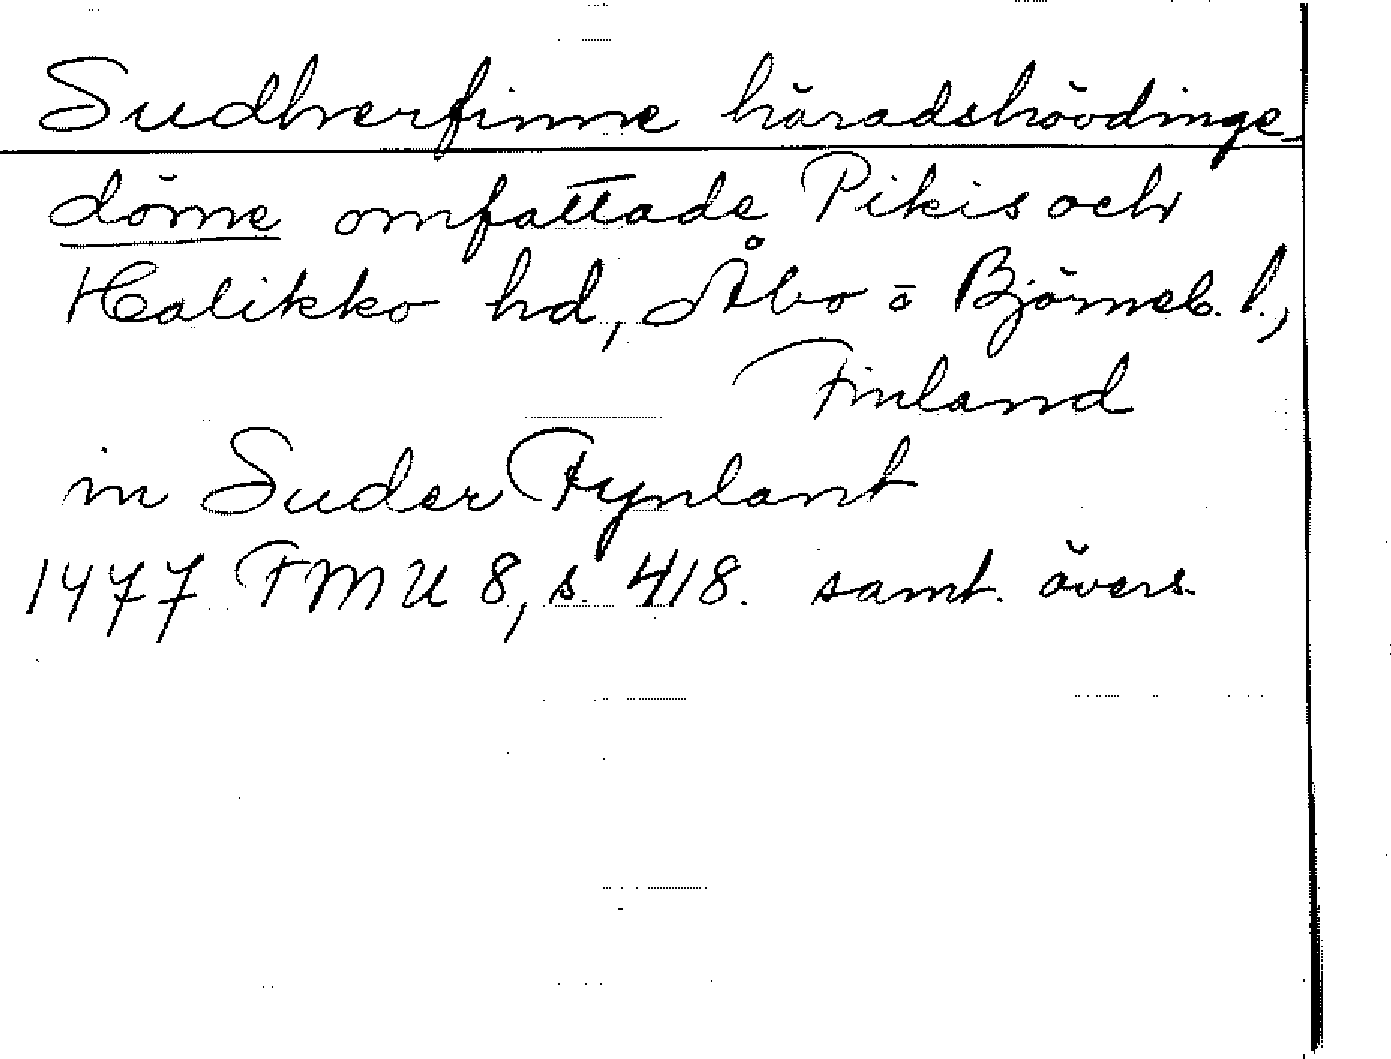 Sudherfinne häradshövdinge-
döme omfattade Pikis och
Halikko hd, Åbo o Björneb. l.,
Finland
in Suder Fynlant
1477 FMU 8, s. 418. samt. övers.